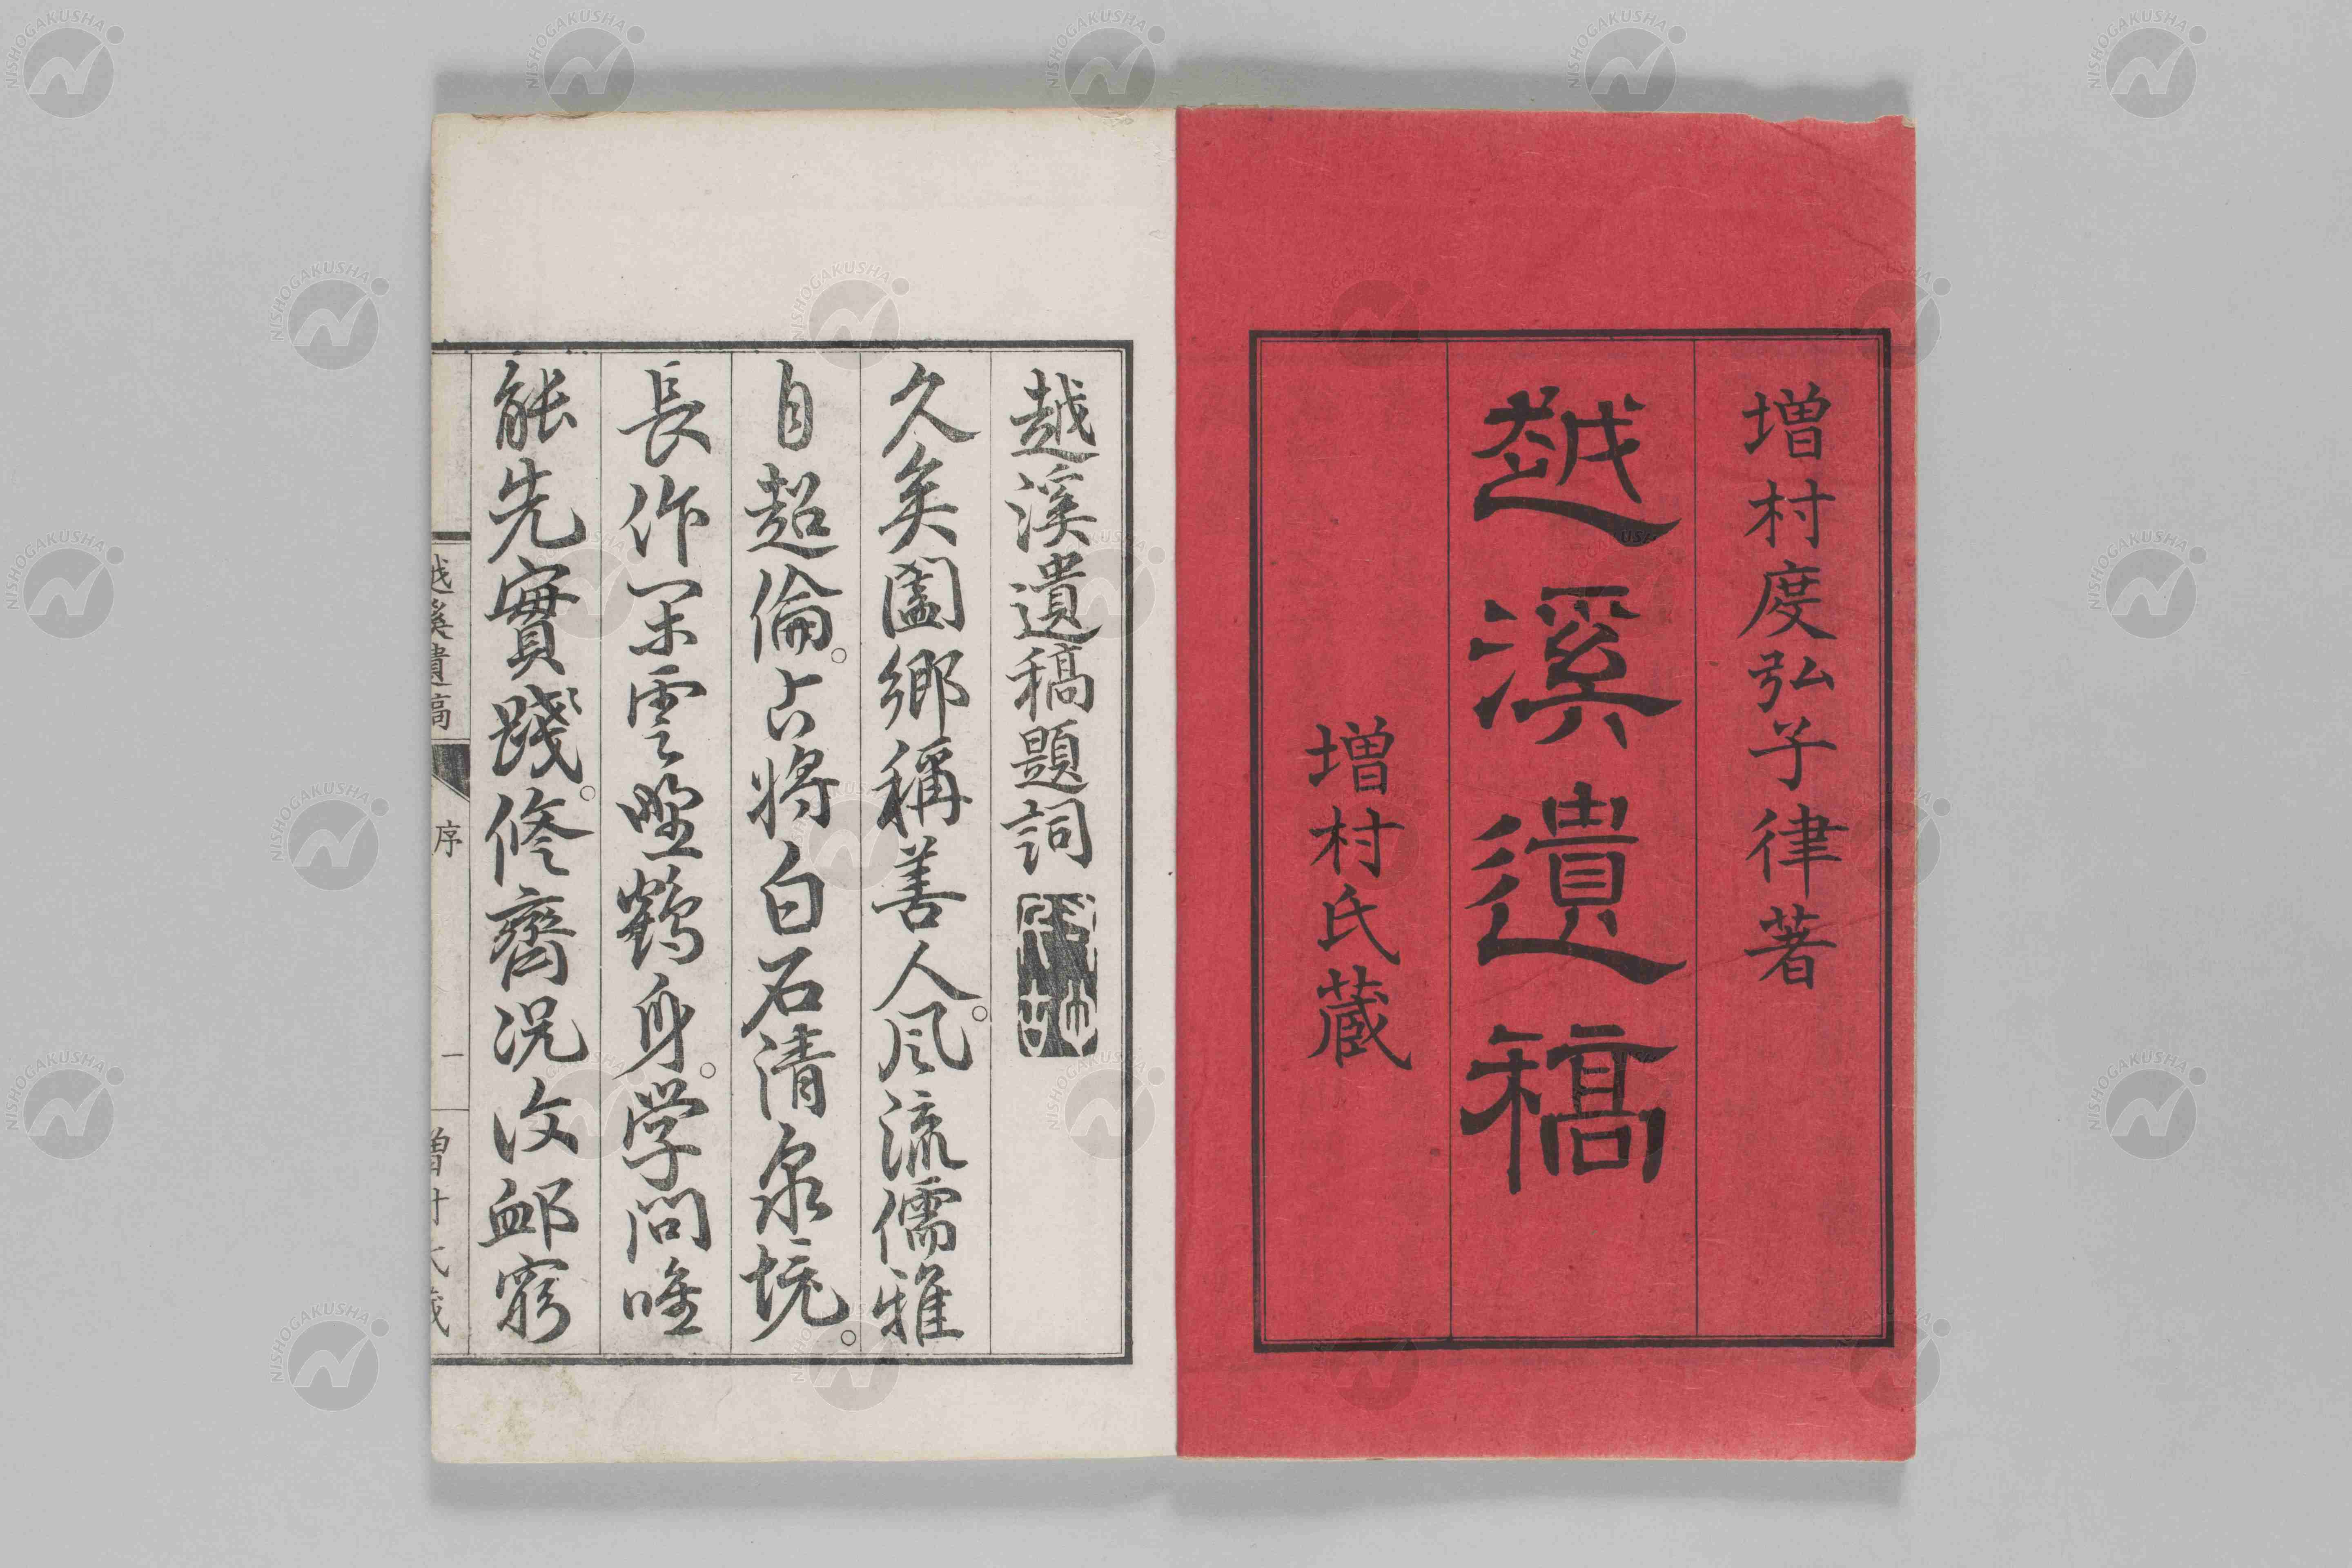 增村度弘子律著
越溪遺稿
增村氏蔵
越溪遺稿題詞
久矣闔鄉稱善人。風流儒雅
自超倫。占將白石清泉境。
長作閑雲野鶴身。学問唯
能先實踐。修齊況汝卹窮
越溪遺稿
序
一
增村氏蔵
NISHOGAKUSHA